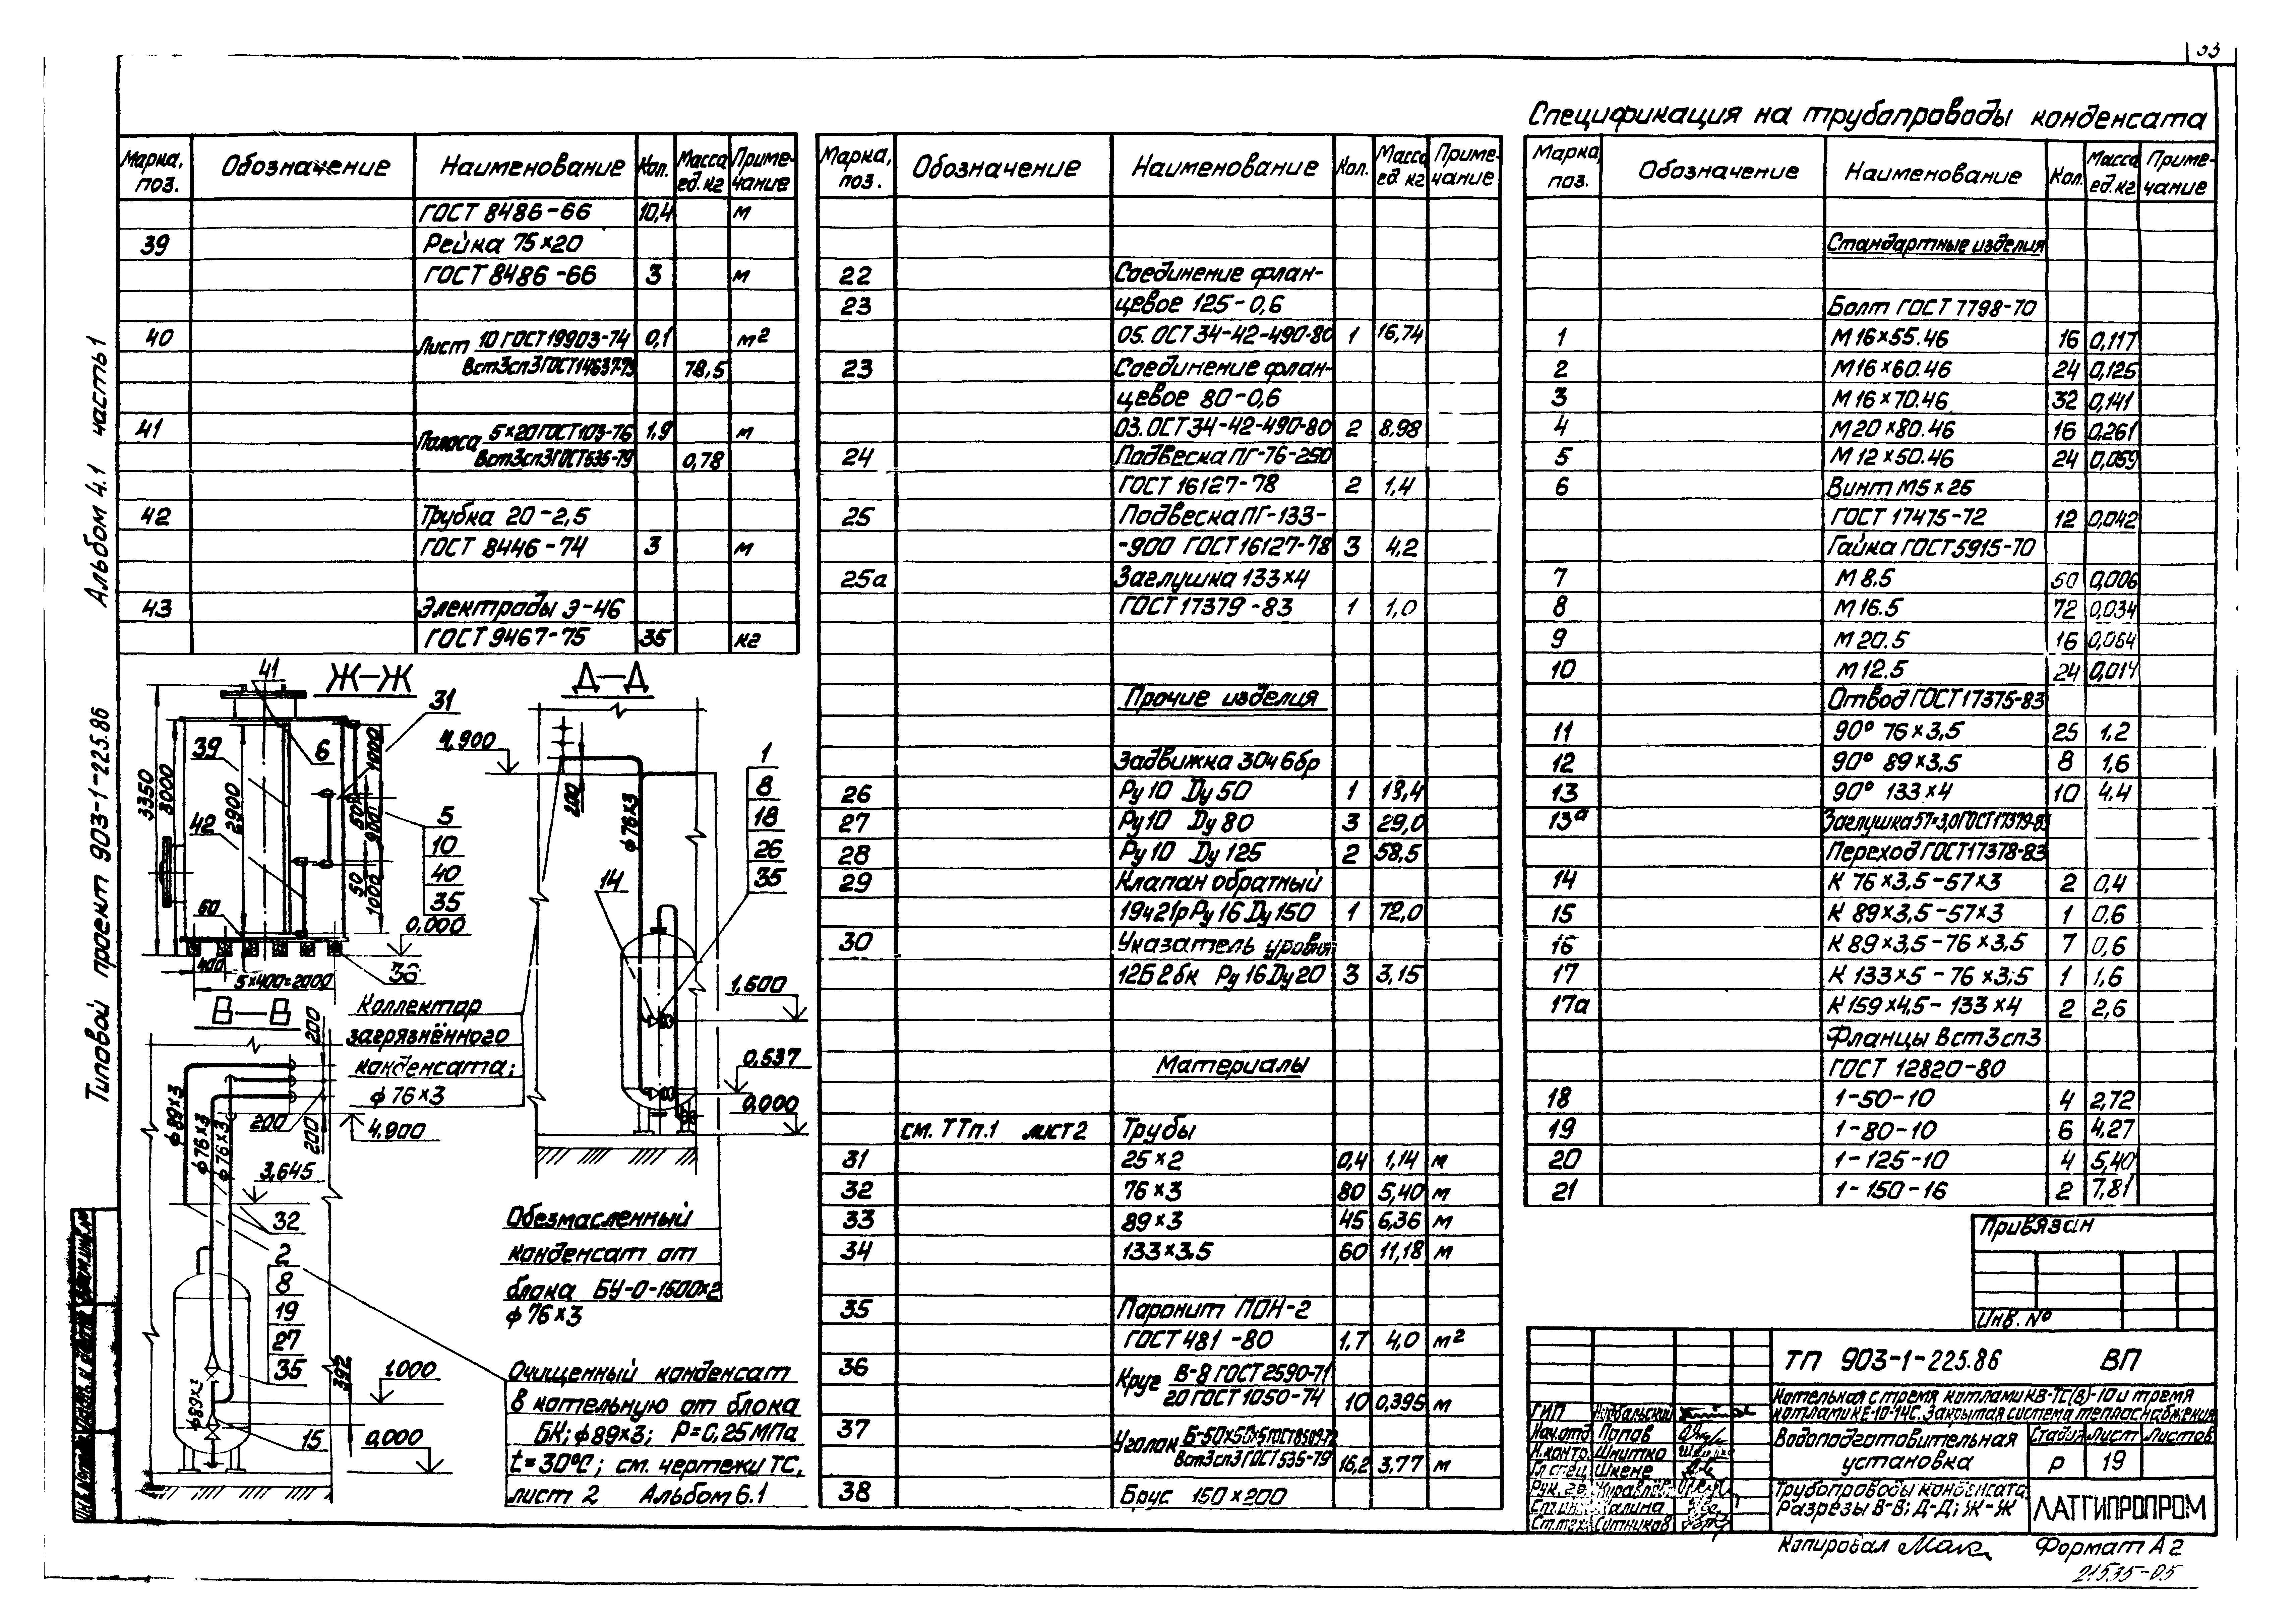 33
Альбом 4.1 часть 1
Типовой проект 903-1-225.86
Марка, поз. Обозначение Наименование Кол. Масса ед. кг Примечание
ГОСТ 8486-66 10,4 м
39 Рейка 75×20
ГОСТ 8486-66 3 м
40 Лист 10 ГОСТ 19903-74 0,1 м²
Вст3сп3 ГОСТ 14637-79 78,5
41 Полоса 5×20 ГОСТ 103-76 1,9 м
Вст3сп3 ГОСТ 535-79 0,78
42 Трубка 20-2,5
ГОСТ 8446-74 3 м
43 Электроды Э-46
ГОСТ 9467-75 35 кг
Ж-Ж
41
31
39
6
3350
3000
2900
1000
50
900
50
1000
42
5
10
40
35
60
0,000
400
5×400=2000
36
Д-Д
4,900
200
ф76×3
1
8
18
26
35
14
1,600
0,537
0,000
Коллектор
загрязнённого
конденсата;
ф76×3
Обезмасленный
конденсат от
блока БУ-0-1600×2
ф76×3
В-В
200
ф89×3
ф76×3
ф76×3
200
200
4,900
3,645
32
2
8
19
27
35
392
1.000
ф89×3
15
0,000
Очищенный конденсат
в котельную от блока
БК; ф89×3; Р=0,25МПа
t=30°С; см. чертежи ТС,
лист 2 Альбом 6.1
Марка, поз. Обозначение Наименование Кол. Масса ед. кг Примечание
22 Соединение флан-
23 цевое 125-0,6
05. ОСТ 34-42-490-80 1 16,74
23 Соединение флан-
цевое 80-0,6
03. ОСТ 34-42-490-80 2 8,98
24 Подвеска ПГ-76-250
ГОСТ 16127-78 2 1,4
25 Подвеска ПГ-133-
-900 ГОСТ 16127-78 3 4,2
25а Заглушка 133×4
ГОСТ 17379-83 1 1,0
Прочие изделия
Задвижка 30ч6бр
26 Ру10 Dу50 1 18,4
27 Ру10 Dу80 3 29,0
28 Ру10 Dу125 2 58,5
29 Клапан обратный
19ч21р Ру16 Dу150 1 72,0
30 Указатель уровня
12Б2бк Ру16 Dу20 3 3,15
Материалы
см. ТТп.1 лист 2 Трубы
31 25×2 0,4 1,14 м
32 76×3 80 5,40 м
33 89×3 45 6,36 м
34 133×3.5 60 11,18 м
35 Паронит ПОН-2
ГОСТ 481-80 1,7 4,0 м²
36 Круг В-8 ГОСТ 2590-71
20 ГОСТ 1050-74 10 0,395 м
37 Уголок Б-50×50×5 ГОСТ 8509-72
Вст3сп3 ГОСТ 535-79 16,2 3,77 м
38 Брус 150×200
Спецификация на трубопроводы конденсата
Марка, поз. Обозначение Наименование Кол. Масса ед. кг Примечание
Стандартные изделия
Болт ГОСТ 7798-70
1 М16×55.46 16 0,117
2 М16×60.46 24 0,125
3 М16×70.46 32 0,141
4 М20×80.46 16 0,261
5 М12×50.46 24 0,059
6 Винт М5×25
ГОСТ 17475-72 12 0,042
Гайка ГОСТ 5915-70
7 М8.5 60 0,006
8 М16.5 72 0,034
9 М20.5 16 0,064
10 М12.5 24 0,014
Отвод ГОСТ 17375-83
11 90° 76×3,5 25 1.2
12 90° 89×3,5 8 1,6
13 90° 133×4 10 4.4
13а Заглушка 57×3,0 ГОСТ 17379-83
Переход ГОСТ 17378-83
14 К 76×3,5-57×3 2 0,4
15 К 89×3,5-57×3 1 0,6
16 К 89×3,5-76×3,5 7 0,6
17 К 133×5-76×3,5 1 1,6
17а К 159×4,5-133×4 2 2,6
Фланцы Вст3сп3
ГОСТ 12820-80
18 1-50-10 4 2,72
19 1-80-10 6 4,27
20 1-125-10 4 5,40
21 1-150-16 2 7,81
Привязан
Инв. №
ТП 903-1-225.86 ВП
Котельная с тремя котлами КВ-ТС(В)-10 и тремя
котлами КЕ-10-14С. Закрытая система теплоснабжения
ГИП
Нач.отд Попов
Н.контр. Шнитко
Гл.спец. Шкене
Рук. гр.
Ст.инж. Калина
Ст.тех. Ситников
Водоподготовительная
установка
Стадия Лист Листов
Р 19
Трубопроводы конденсата.
Разрезы В-В; Д-Д; Ж-Ж
ЛАТГИПРОПРОМ
Копировал
Формат А2
21535-05